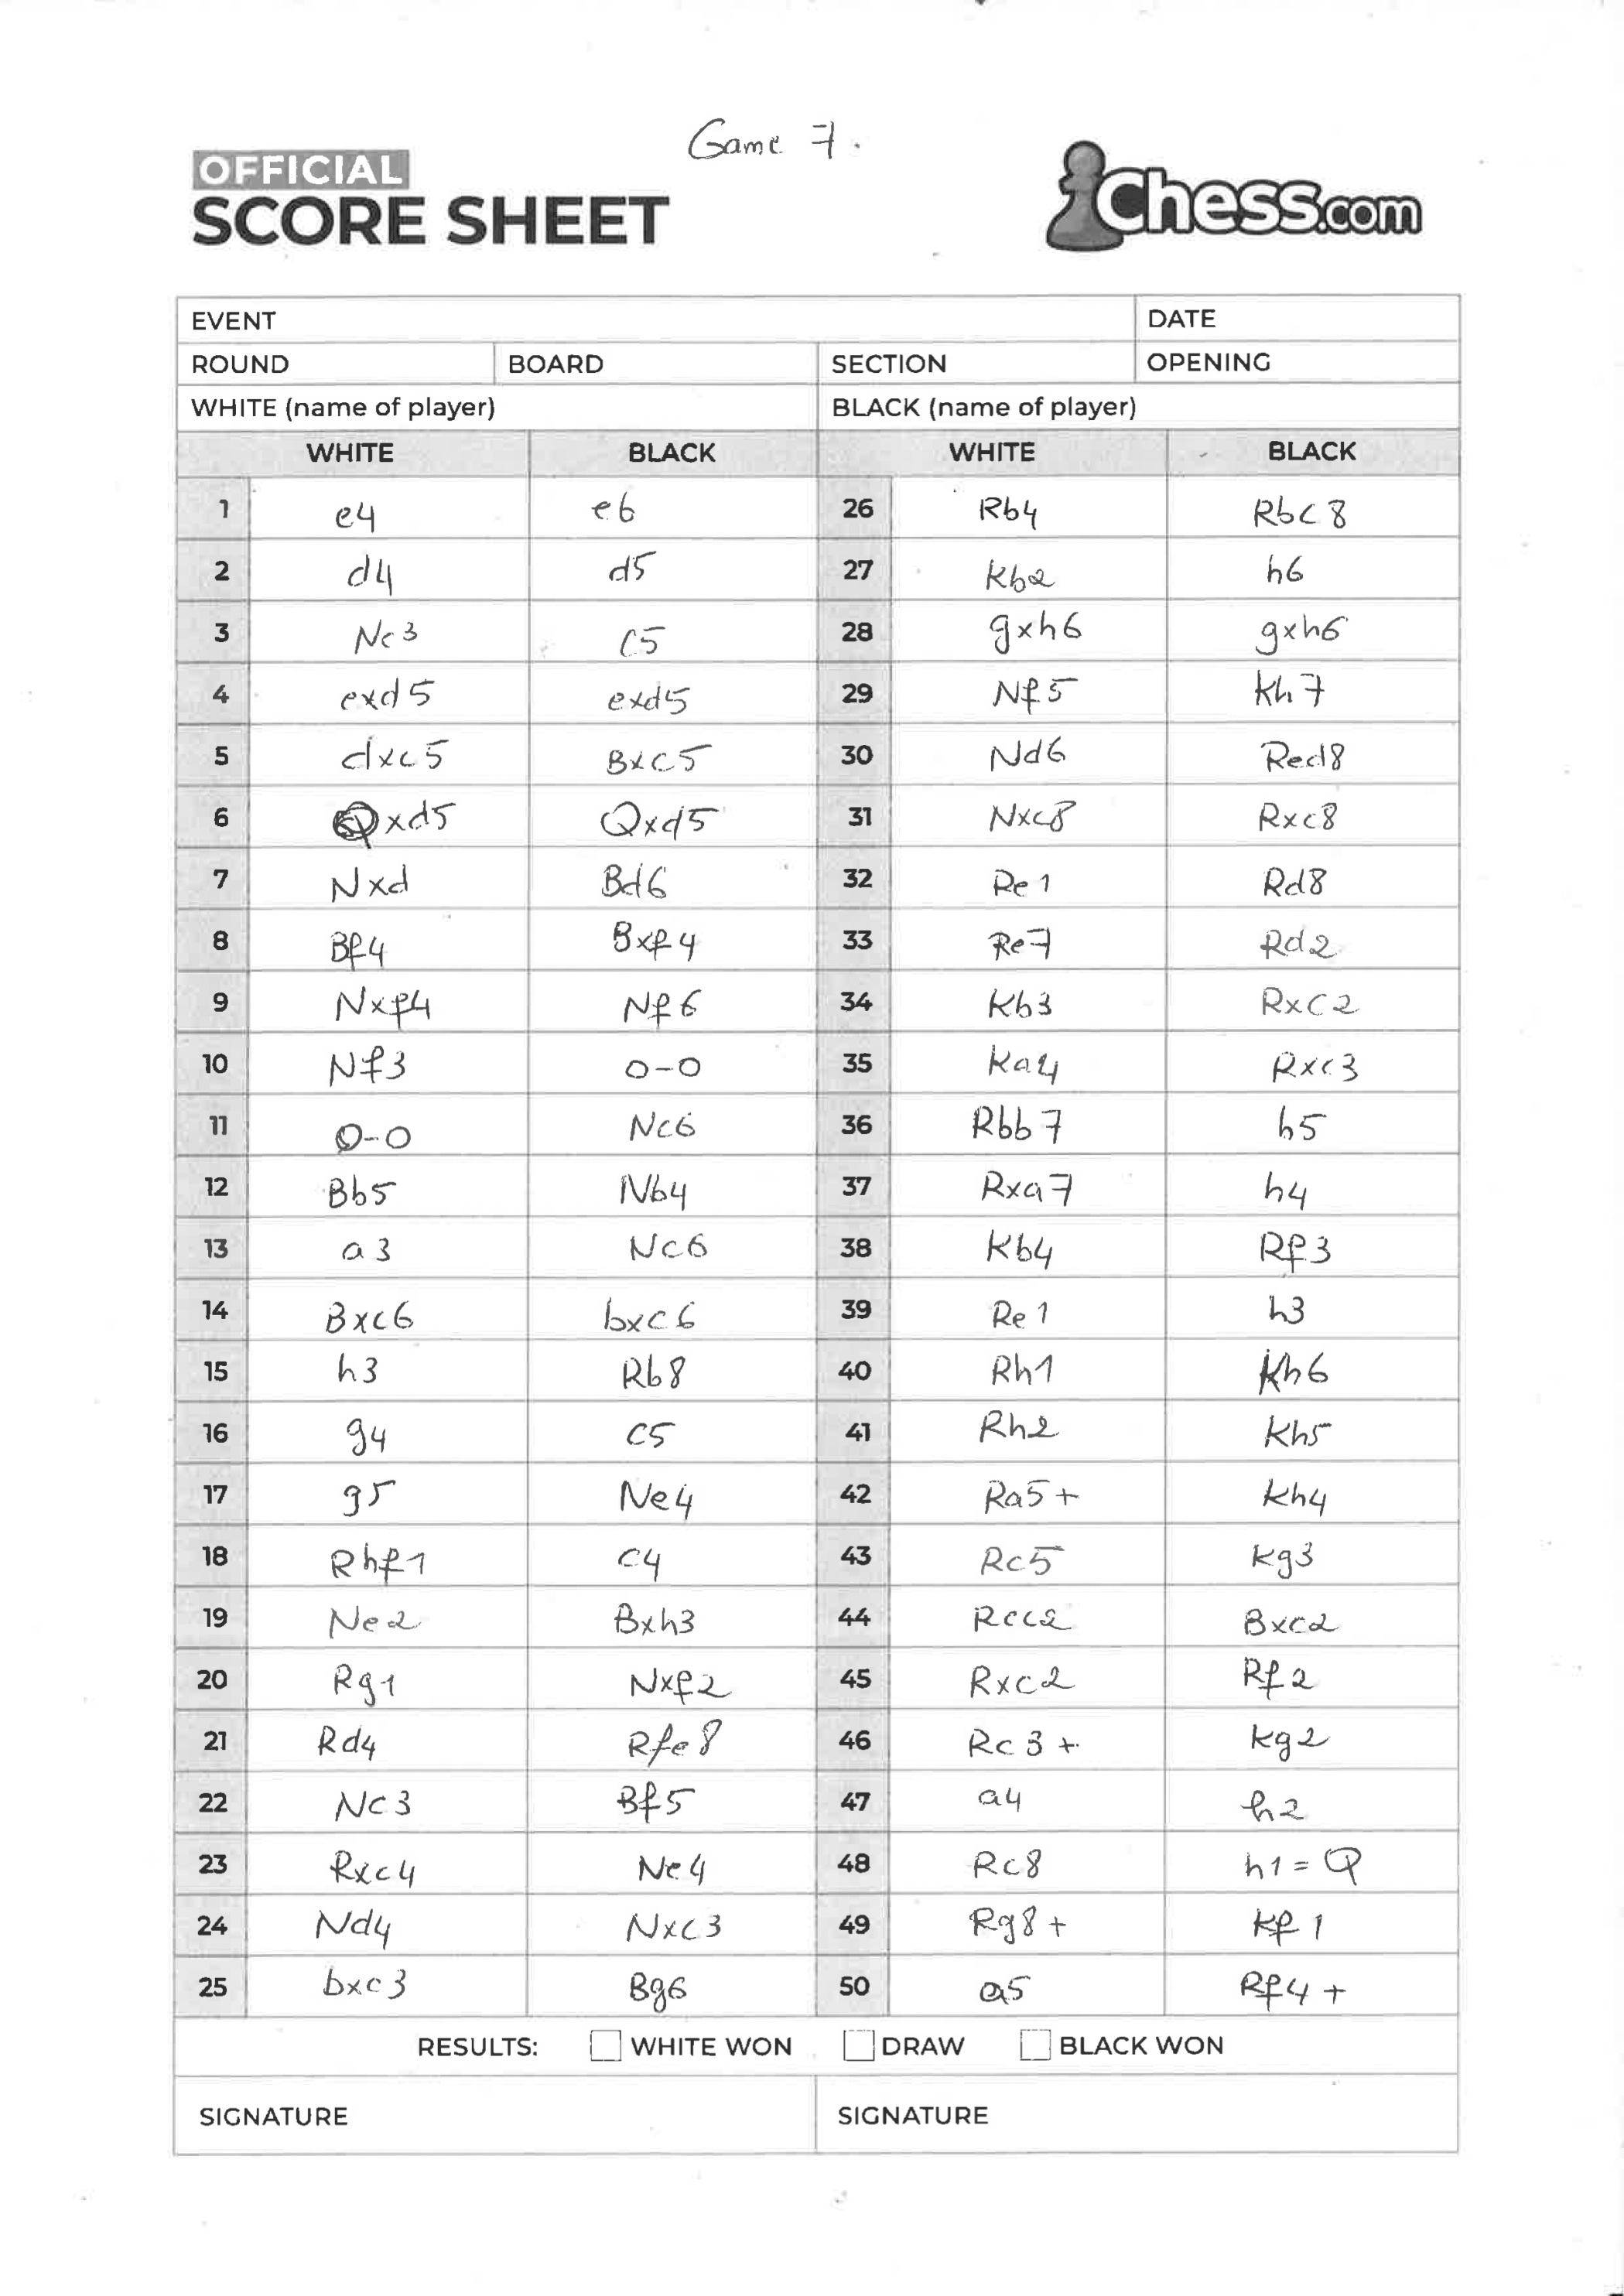 Game 7.
OFFICIAL
SCORE SHEET
Chess.com
EVENT DATE
ROUND BOARD SECTION OPENING
WHITE (name of player) BLACK (name of player)
WHITE BLACK WHITE BLACK
1 e4 e6 26 Rb4 Rbc8
2 d4 d5 27 Kb2 h6
3 Nc3 c5 28 gxh6 gxh6
4 exd5 exd5 29 Nf5 Kh7
5 dxc5 Bxc5 30 Nd6 Red8
6 Qxd5 Qxd5 31 Nxc8 Rxc8
7 Nxd Bd6 32 Re1 Rd8
8 Bf4 Bxf4 33 Re7 Rd2
9 Nxf4 Nf6 34 Kb3 Rxc2
10 Nf3 0-0 35 Ka4 Rxc3
11 0-0 Nc6 36 Rbb7 h5
12 Bb5 Nb4 37 Rxa7 h4
13 a3 Nc6 38 Kb4 Rf3
14 Bxc6 bxc6 39 Re1 h3
15 h3 Rb8 40 Rh1 Kh6
16 g4 c5 41 Rh2 Kh5
17 g5 Ne4 42 Ra5+ Kh4
18 Rhf1 c4 43 Rc5 Kg3
19 Ne2 Bxh3 44 Rcc2 Bxc2
20 Rg1 Nxf2 45 Rxc2 Rf2
21 Rd4 Rfe8 46 Rc3+ Kg2
22 Nc3 Bf5 47 a4 h2
23 Rxc4 Ne4 48 Rc8 h1=Q
24 Nd4 Nxc3 49 Rg8+ Kf1
25 bxc3 Bg6 50 a5 Rf4+
RESULTS: WHITE WON DRAW BLACK WON
SIGNATURE SIGNATURE